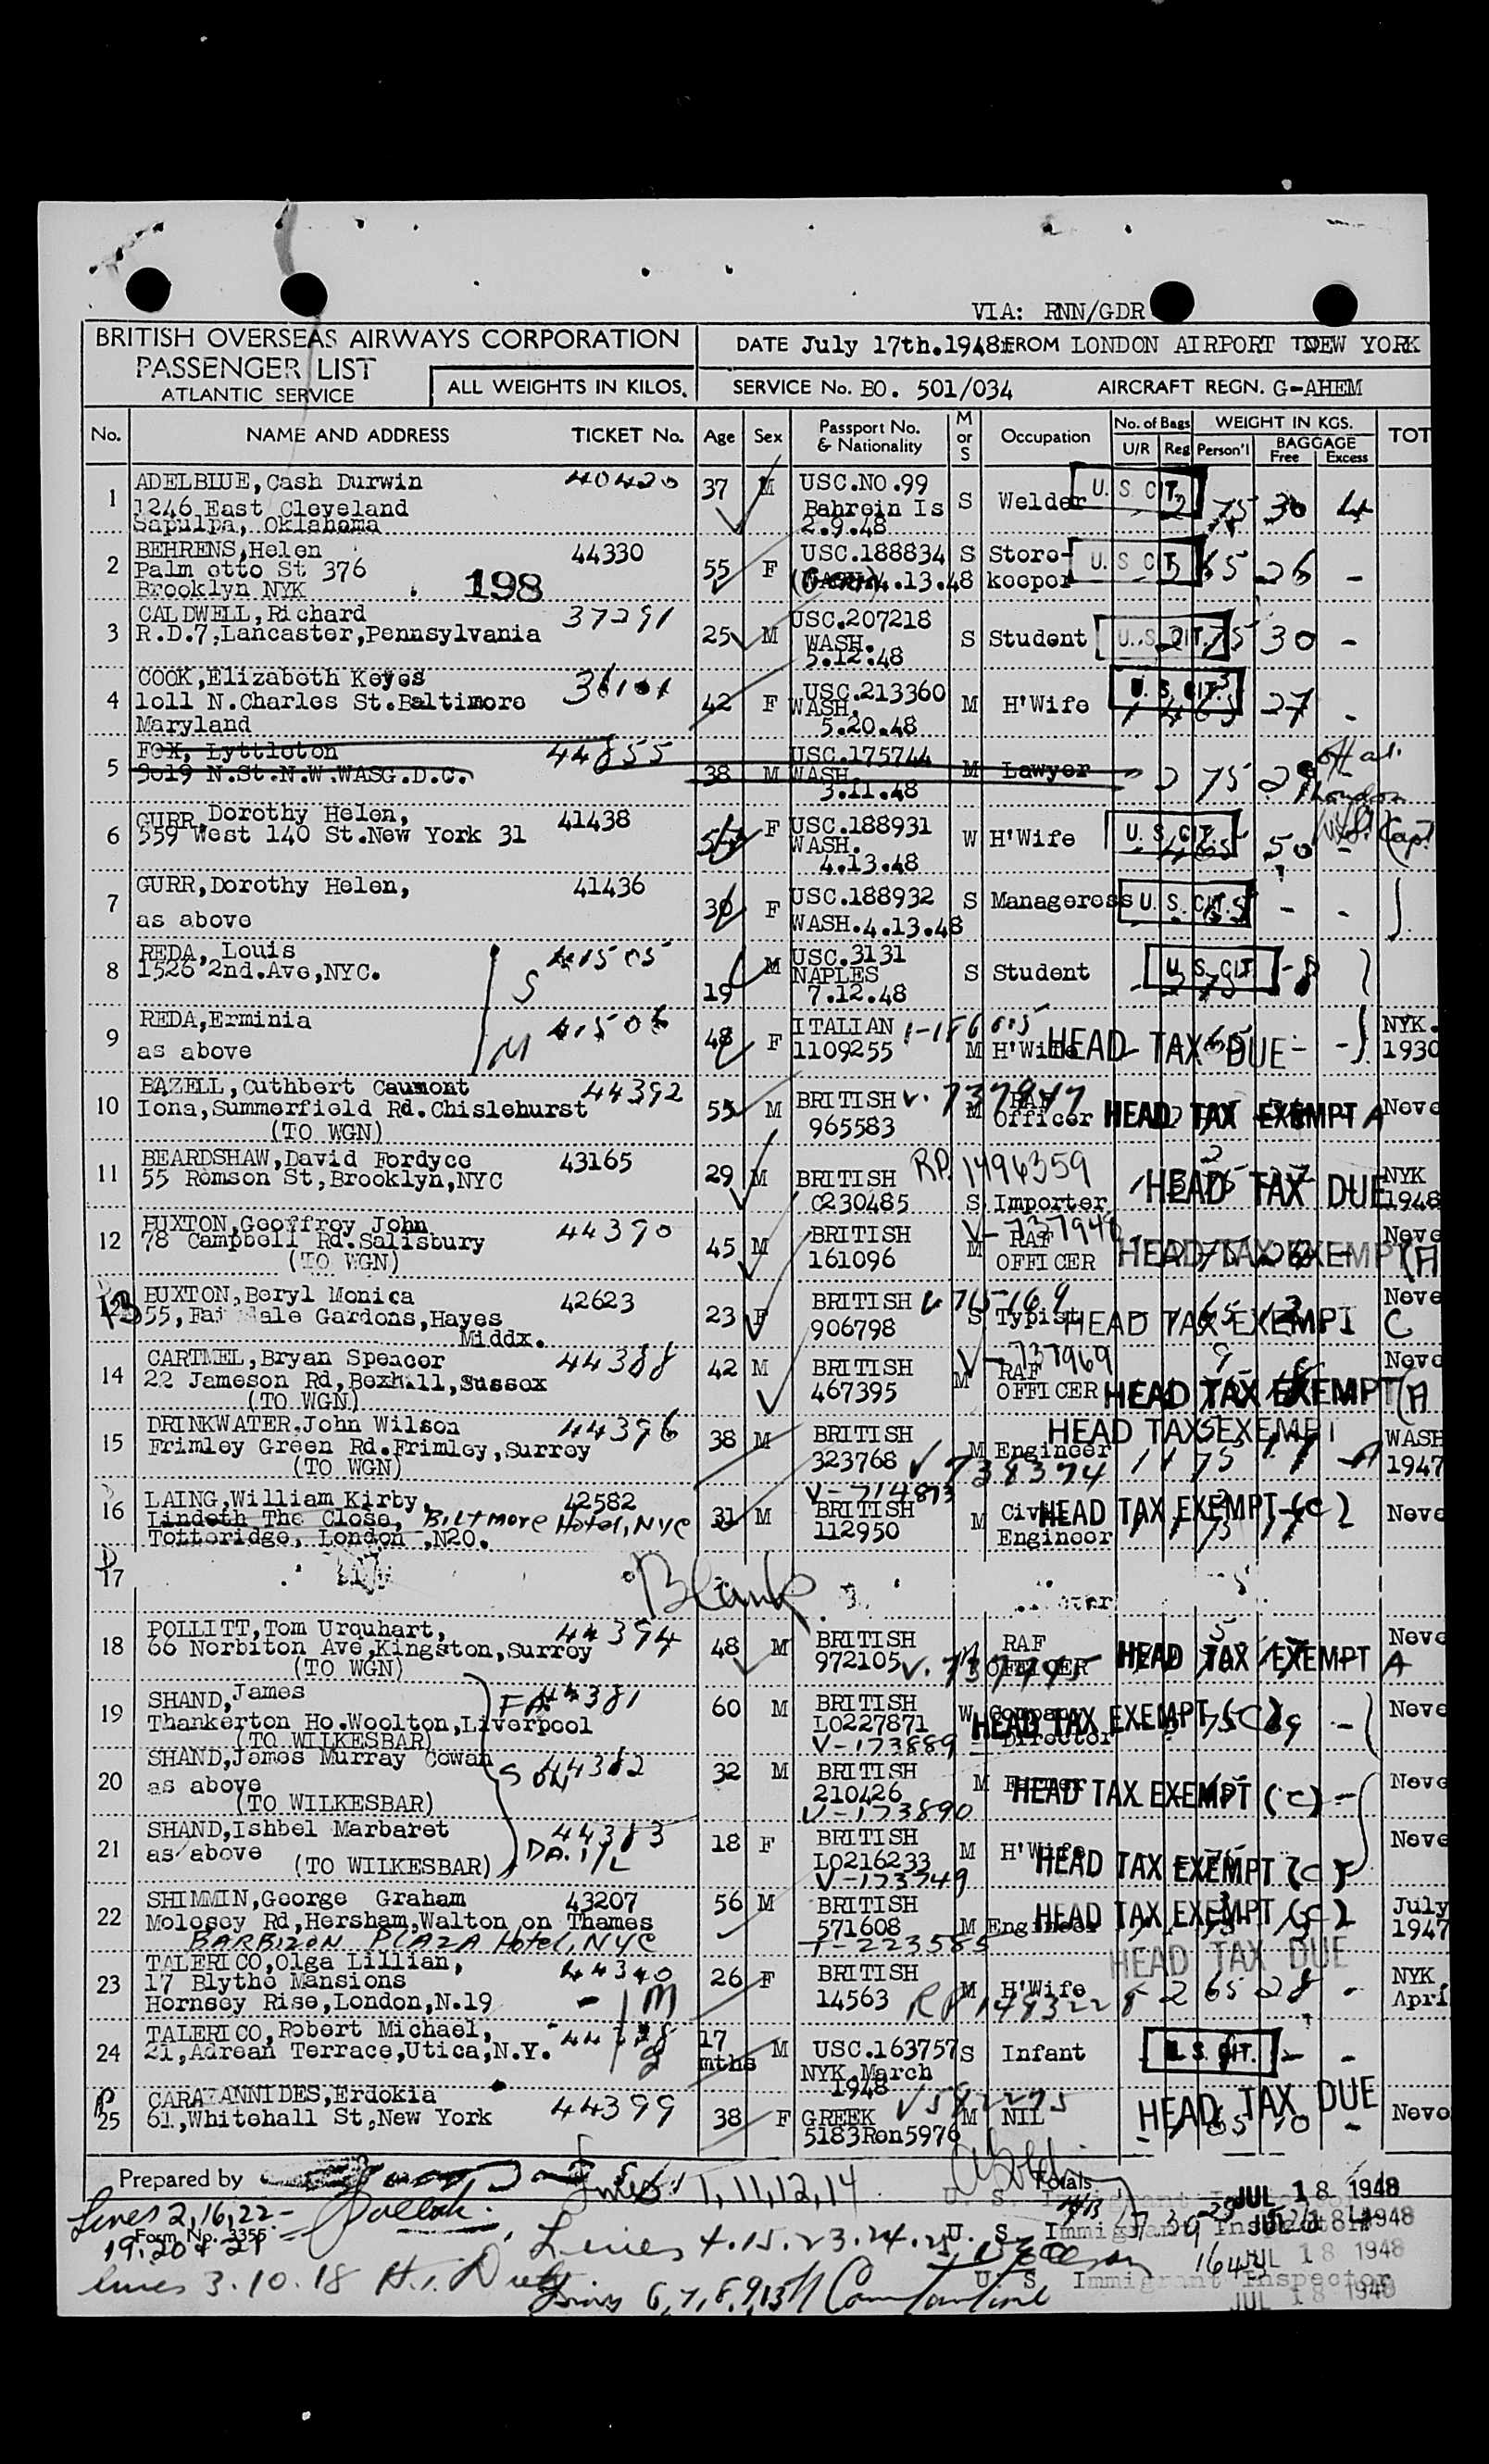 VIA: RNN/GDR
BRITISH OVERSEAS AIRWAYS CORPORATION
PASSENGER LIST
ATLANTIC SERVICE
ALL WEIGHTS IN KILOS.
DATE July 17th.1948 FROM LONDON AIRPORT TO NEW YORK
SERVICE No. BO. 501/034 AIRCRAFT REGN. G-AHEM
No. NAME AND ADDRESS TICKET No. Age Sex Passport No. & Nationality M or S Occupation No. of Bags U/R Reg WEIGHT IN KGS. Person'l BAGGAGE Free Excess TOT
1 ADELBLUE, Cash Durwin 40420 37 M USC.NO.99 S Welder U. S. CIT. 75 30 4
1246 East Cleveland Bahrein Is
Sapulpa, Oklahoma 2.9.48
2 BEHRENS, Helen 44330 55 F USC.188834 S Store-keeper U. S. CIT. 65 26 -
Palm otto St 376 4.13.48
Brooklyn NYK 198
3 CALDWELL, Richard 37291 25 M USC.207218 S Student U. S. CIT. 75 30 -
R.D.7, Lancaster, Pennsylvania WASH.
5.12.48
4 COOK, Elizabeth Keyes 42 F USC.213360 M H'Wife U. S. CIT. 65 27 -
1011 N.Charles St.Baltimore WASH.
Maryland 5.20.48
5 FOX, Lyttleton 44855 38 M USC.175744 M Lawyer 2 75
3019 N.St.N.W.WASG.D.C. WASH.
3.11.48 London
6 GURR, Dorothy Helen, 41438 54 F USC.188931 W H'Wife U. S. CIT. 50 -
559 West 140 St.New York 31 WASH.
4.13.48
7 GURR, Dorothy Helen, 41436 30 F USC.188932 S Manageress U. S. CIT. - -
as above WASH.4.13.48
8 REDA, Louis S 41505 19 M USC.3131 S Student U. S. CIT.
1526 2nd.Ave, NYC. NAPLES
7.12.48
9 REDA, Erminia M 41506 48 F ITALIAN M H'Wife HEAD TAX DUE NYK.
as above 1109255 1930
10 BAZELL, Cuthbert Caumont 44392 55 M BRITISH V. 737947 M RAF Officer HEAD TAX EXEMPT A Neve
Iona, Summerfield Rd.Chislehurst 965583
(TO WGN)
11 BEARDSHAW, David Fordyce 43165 29 M BRITISH RP. 1496359 S Importer HEAD TAX DUE NYK
55 Remson St, Brooklyn, NYC C230485 1948
12 BUXTON, Geoffrey John 44390 45 M BRITISH V-737948 M RAF OFFICER HEAD TAX EXEMPT (A Neve
78 Campbell Rd.Salisbury 161096
(TO WGN)
13 BUXTON, Beryl Monica 42623 23 F BRITISH V. 715169 S Typist HEAD TAX EXEMPT C Neve
55, Gardens, Hayes 906798
Middx.
14 CARTMEL, Bryan Spencer 44388 42 M BRITISH V-737969 M RAF OFFICER HEAD TAX EXEMPT (A Neve
22 Jameson Rd, Bexhill, Sussex 467395
(TO WGN)
15 DRINKWATER, John Wilson 44396 38 M BRITISH M Engineer HEAD TAX EXEMPT WASH
Frimley Green Rd.Frimley, Surrey 323768 V 738374 75 1947
(TO WGN)
16 LAING, William Kirby, 42582 31 M V-714873 BRITISH M Civil Engineer HEAD TAX EXEMPT (C) Neve
Lindeth The Close, Biltmore Hotel, NYC 112950
Totteridge, London, N20.
17 Blank
18 POLLITT, Tom Urquhart, 44394 48 M BRITISH M RAF OFFICER HEAD TAX EXEMPT A Neve
66 Norbiton Ave, Kingston, Surrey 972105
(TO WGN)
19 SHAND, James FA. 44381 60 M BRITISH W Company Director HEAD TAX EXEMPT (C) Neve
Thankerton Ho.Woolton, Liverpool L0227871
(TO WILKESBAR) V-173889
20 SHAND, James Murray Cowan SON 44382 32 M BRITISH M Farmer HEAD TAX EXEMPT (C) Neve
as above 210426
(TO WILKESBAR) V-173890
21 SHAND, Ishbel Marbaret 44383 DA. I/L 18 F BRITISH M H'Wife HEAD TAX EXEMPT (C) Neve
as above L0216233
(TO WILKESBAR) V-173749
22 SHIMMIN, George Graham 43207 56 M BRITISH M Engineer HEAD TAX EXEMPT (C) July
Molesey Rd, Hersham, Walton on Thames 571608 1947
BARBIZON PLAZA Hotel, NYC T-223585
23 TALERICO, Olga Lillian, 44340 26 F BRITISH M H'Wife HEAD TAX DUE 2 65 28 - NYK
17 Blythe Mansions 14563 April
Hornsey Rise, London, N.19 M
24 TALERICO, Robert Michael, 17 mths M USC.163757 S Infant U. S. CIT. - -
21, Adrean Terrace, Utica, N.Y. NYK March
1948
25 Erdokia 44399 38 F GREEK M NIL HEAD TAX DUE Neve
61, Whitehall St, New York 5183Ren5976
Prepared by Lines 1, 11, 12, 14 Totals JUL 18 1948
U. S. Immigrant Inspector
Lines 2, 16, 22-
Form No. 3355
19. 20 & 21
Lines 4.15.23.24.25 U. S. Immigrant Inspector JUL 18 1948
JUL 18 1948
lines 3.10.18
Lines 6, 7, 8, 9, 13 U. S. Immigrant Inspector
JUL 18 1948